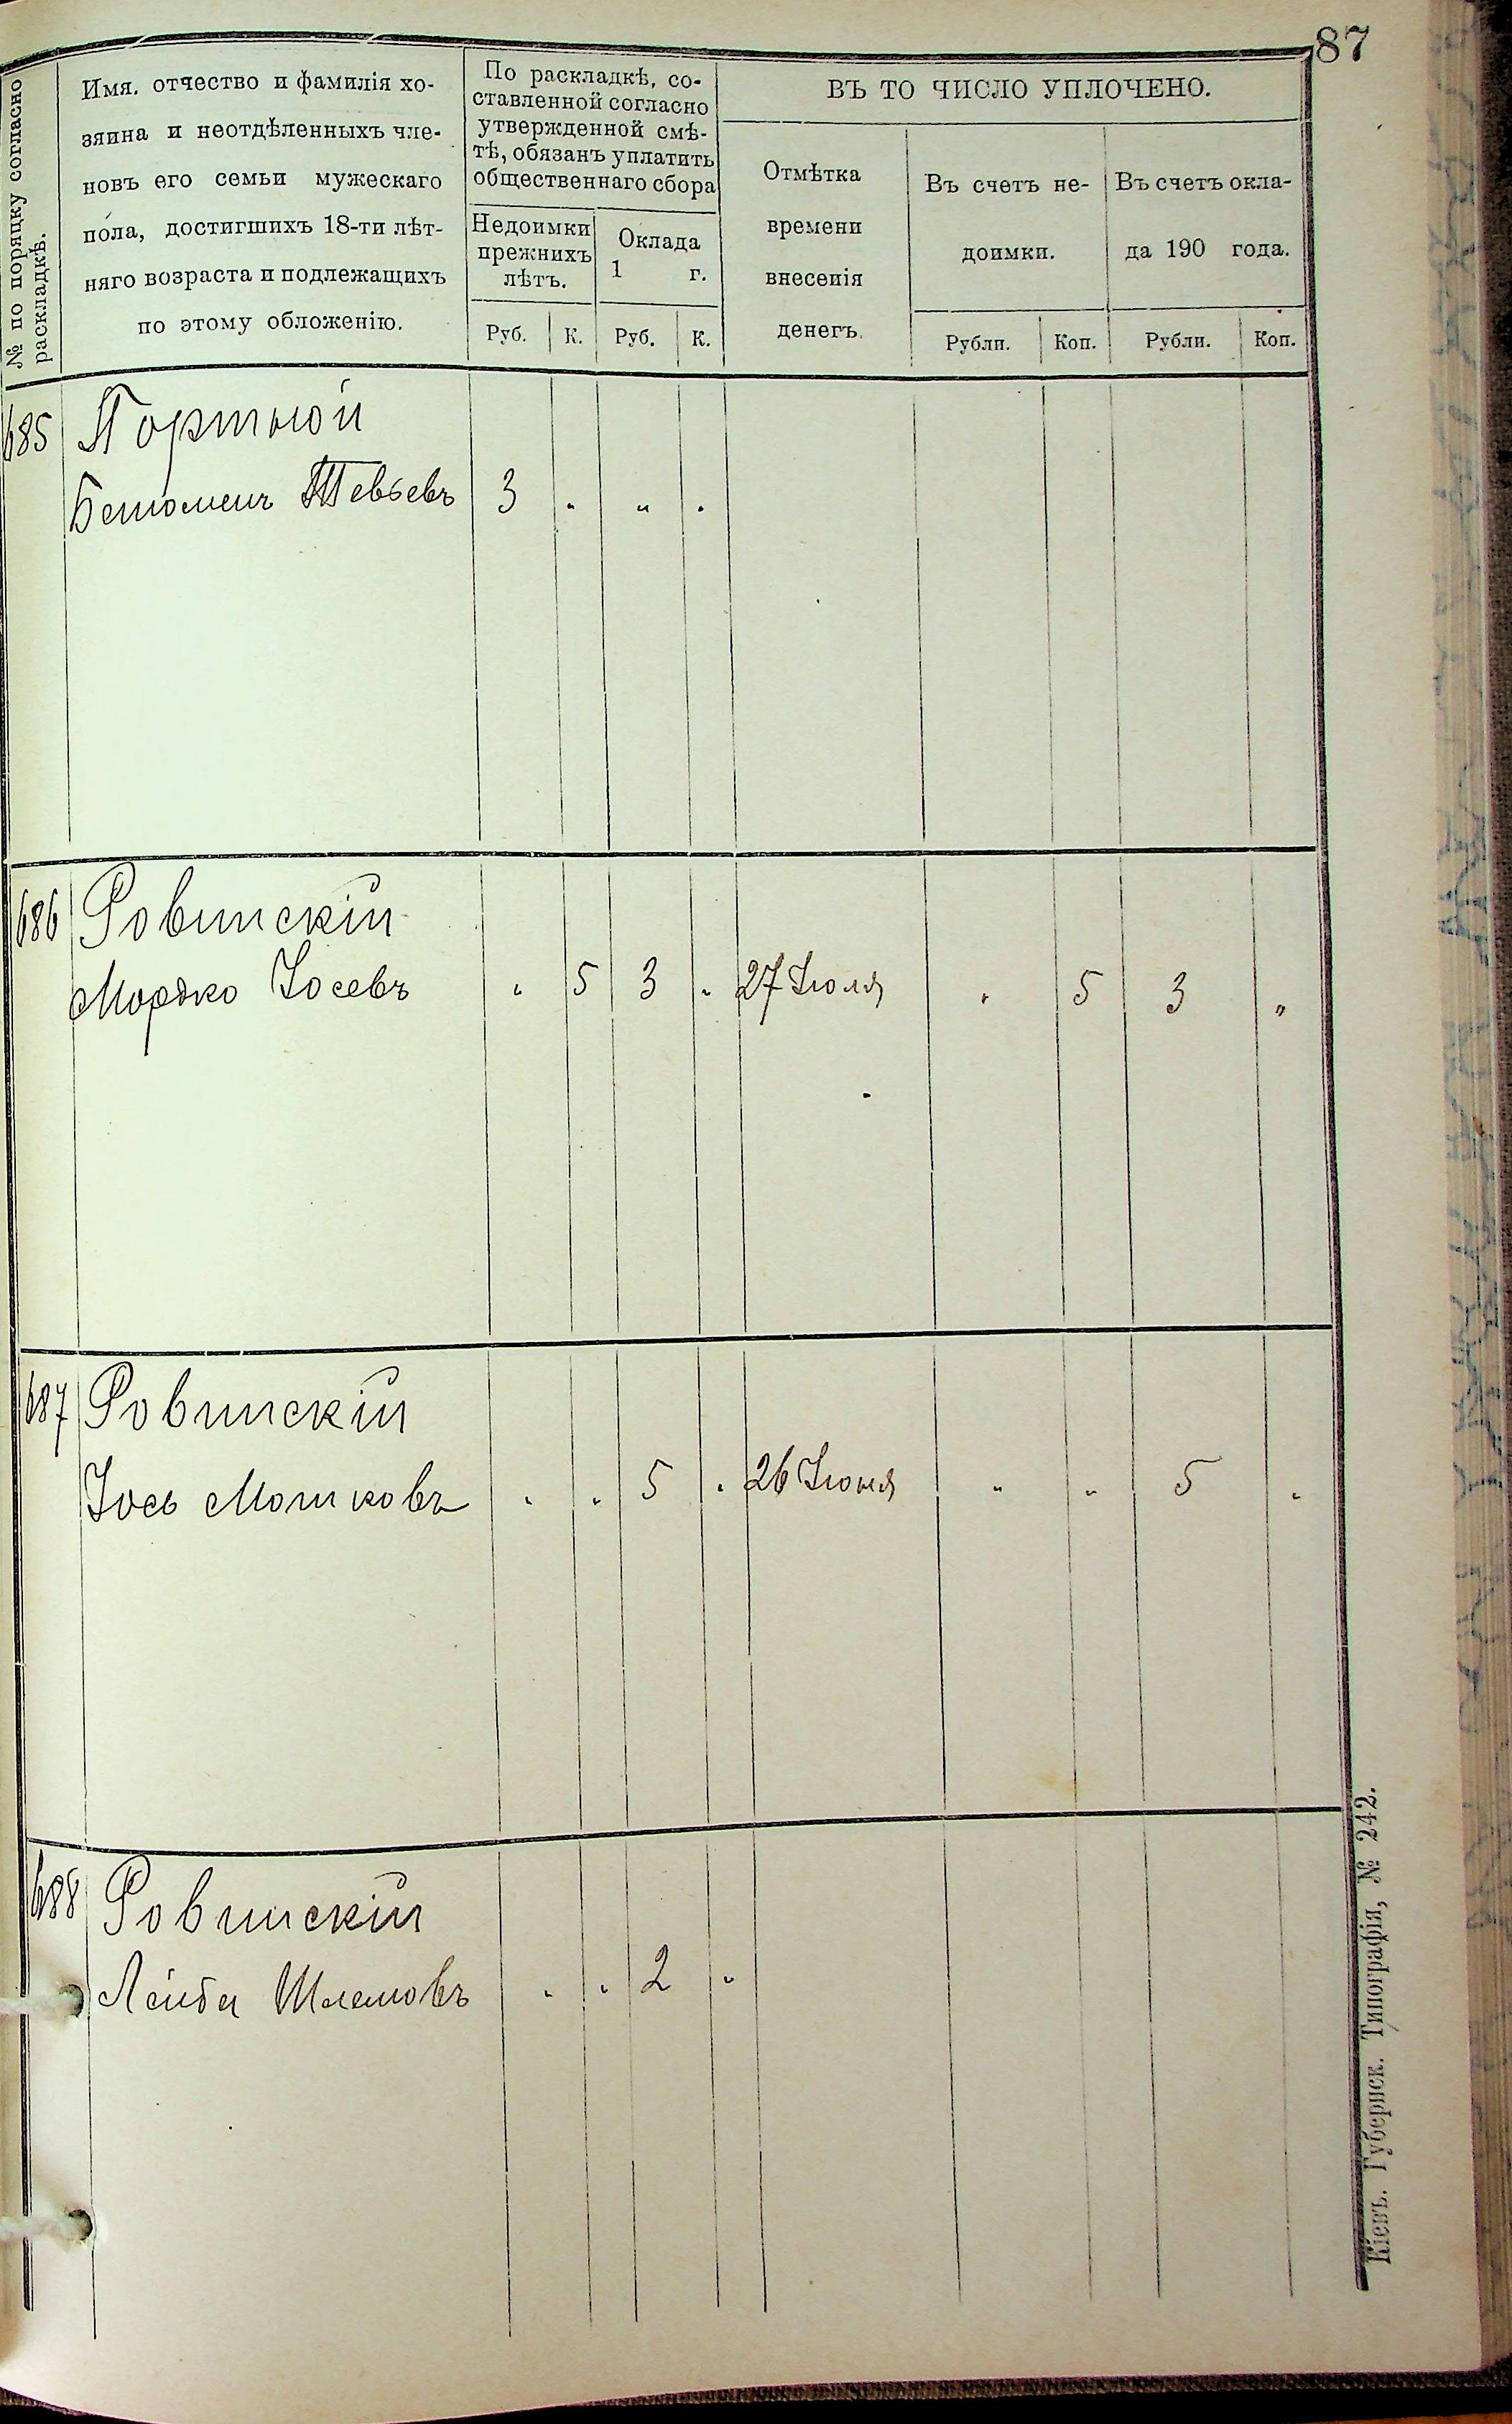 87
№ по порядку согласно
раскладкѣ.
Имя, отчество и фамилія хо-
зяина и неотдѣленныхъ чле-
новъ его семьи мужескаго
пола, достигшихъ 18-ти лѣт-
няго возраста и подлежащихъ
по этому обложенію.
По раскладкѣ, со-
ставленной согласно
утвержденной смѣ-
тѣ, обязанъ уплатить
общественнаго сбора
Недоимки
прежнихъ
лѣтъ.
Оклада
1 г.
Руб. К. Руб. К.
ВЪ ТО ЧИСЛО УПЛОЧЕНО.
Отмѣтка
времени
внесенія
денегъ.
Въ счетъ не-
доимки.
Въ счетъ окла-
да 190 года.
Рубли. Коп. Рубли. Коп.
685 Портной
Тевьевъ 3 " " "
686 Ровинскій
Мордко Іосевъ " 5 3 " 27 Іюля " 5 3 "
687 Ровинскій
Іось Мошковъ " " 5 " 26 Іюня " " 5 "
688 Ровинскій
Лейба Шлемовъ " " 2 "
Кіевъ. Губернск. Типографія, № 242.